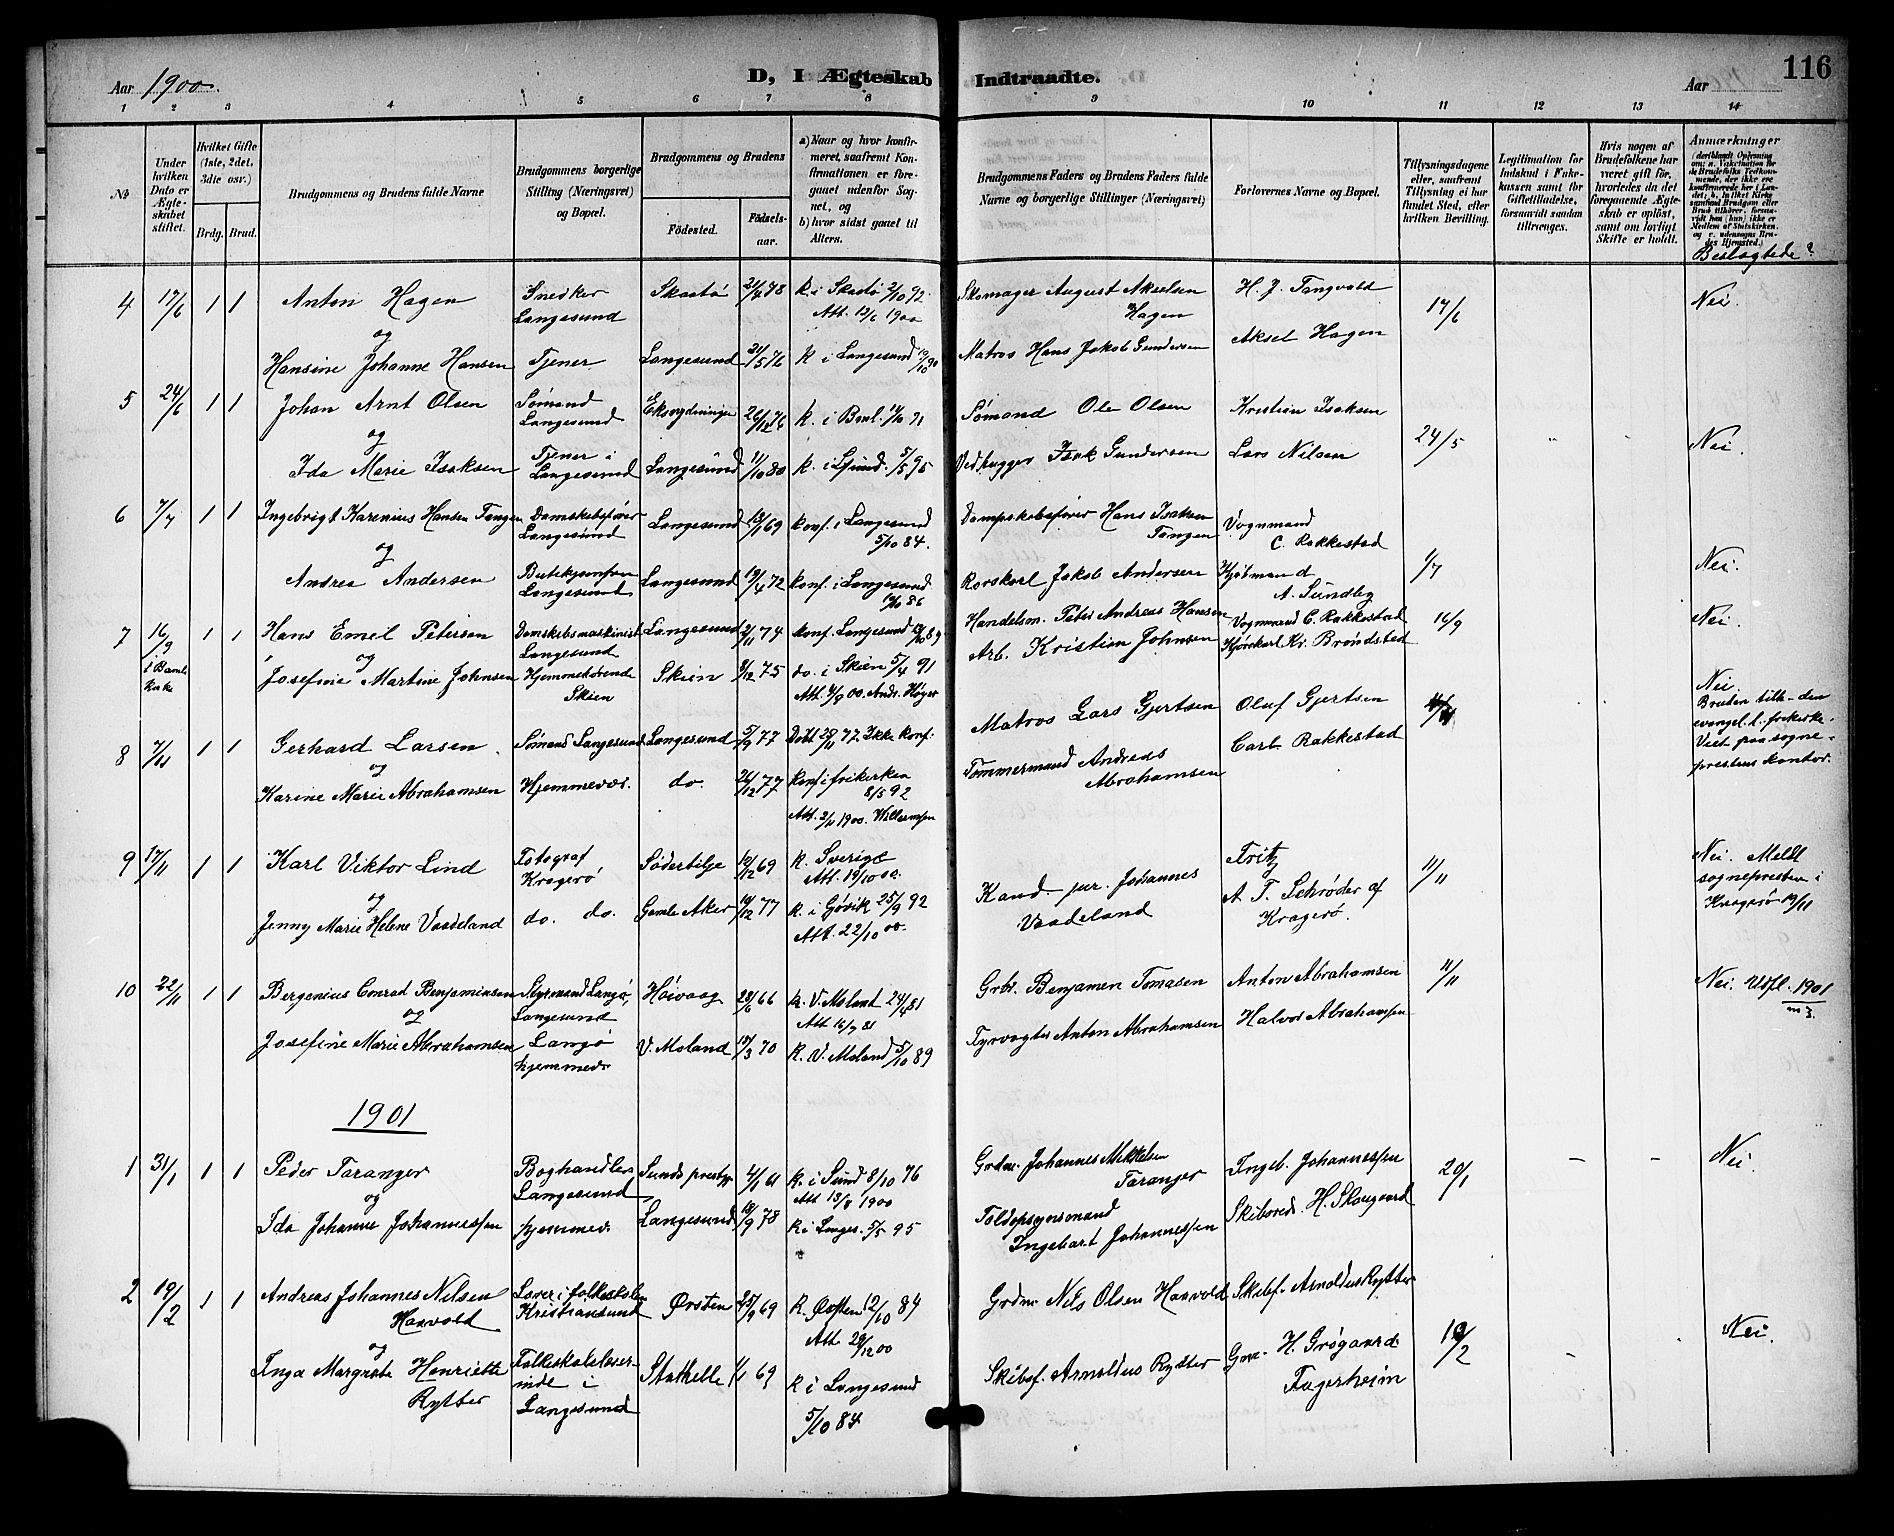 Aar 1900. D, I Ægteskab Indtraadte. Aar 116
1 2 3 4 5 6 7 8 9 10 11 12 13 14
No
Under hvilken Dato er Ægteskabet stiftet.
Hvilket Gifte (1ste, 2det, 3die osv.)
Brdg. Brud.
Brudgommens og Brudens fulde Navne
Brudgommens borgerlige Stilling (Næringsvei) og Bopæl.
Brudgommens og Brudens
Födested.
Födselsaar.
a) Naar og hvor konfirmeret, saafremt Konfirmationen er foregaaet udenfor Sognet, og
b) hvor sidst gaaet til Alters.
Brudgommens Faders og Brudens Faders fulde Navne og borgerlige Stillinger (Næringsvei)
Forlovernes Navne og Bopæl.
Tillysningsdagene eller, saafremt Tillysning ei har fundet Sted, efter hvilken Bevilling.
Legitimation for Indskud i Enkekassen samt for Giftetilladelse, forsaavidt saadan tiltrænges.
Hvis nogen af Brudefolkene har været gift för, hvorledes da det foregaaende Ægteskab er oplöst, samt om lovligt Skifte er holdt.
Anmærkninger
Beslægtede?
4 17/6 1 1 Anton Hagen Snedker Langesund Skaatö 21/4 78 k. i Skaatö 2/10 92. Att. 13/6 1900 Skomager August Akselsen Hagen H. J. Tangvald 17/6 Nei.
og
Hansine Johanne Hansen Tjener Langesund 21/5 76 k i Langesund 19/10 90 Matros Hans Jakob Gundersen Aksel Hagen
5 24/6 1 1 Johan Arnt Olsen Sömand Langesund 26/12 76 k. i Baml. 91 Sömand Ole Olsen Kristian Isaksen 24/5 Nei.
og
Ida Marie Isaksen Tjener i Langesund Langesund 11/10 80 k. i Lsund. 5/5 95 Vedhugger Isak Gundersen Lars Nilsen
6 7/7 1 1 Ingebrigt Karenius Hansen Tangen Damskibsförer Langesund Langesund 13/1 69 konf. i Langesund 5/10 84. Dampskibsförer Hans Isaksen Tangen Vognmand C. Rakkestad 1/7 Nei.
og
Andrea Andersen Butikjomfru Langesund Langesund 19/4 72 konf. i Langesund 86 Jakob Andersen Kjöbmand A. Sundby
7 16/9 i Bamle Kirke 1 1 Hans Emil Petersen Damskibsmaskinist Langesund Langesund 2/11 74 konf. Langesund 89 Handelsm. Peter Andreas Hansen Vognmand C. Rakkestad 16/9 Nei.
og
Josefine Martine Johnsen Hjemmehörende Skien Skien 3/12 75 do. i Skien 5/4 91 Att. 3/9 00. Andr. Höyer Arb. Kristian Johnsen Kr. Bröndstad
8 7/11 1 1 Gerhard Larsen Sömand Langesund Langesund 5/9 77 Döbt 25/11 77. Ikke konf. Matros Lars Gjertsen Oluf Gjertsen Nei Bruden tilh. den evangel. l. frikirke. Viet paa sogneprestens kontor.
og
Karine Marie Abrahamsen Hjemmevær. do. 26/12 77 konf. i frikirken 8/5 92 Att. 2/11 1900. Willumsen Tömmermand Andreas Abrahamsen Carl Rakkestad
9 17/11 1 1 Karl Viktor Lind Fotograf Kragerö Södertelje 12/12 69 k. Sverige Att. 19/10 00. Fritz 11/11 Nei. Meldt sognepresten i Kragerö 19/11
og
Jenny Marie Helene Vaadeland do. do. Gamle Aker 14/12 77 k. i Gjövik 25/9 92 Att. 22/10 00. Kand. jur. Johannes Vaadeland A. T. Schröder af Kragerö.
10 22/11 1 1 Bergenius Conrad Benjaminsen Styrmand Langö, Langesund Höivaag 28/6 66 k. V. Moland 24/4 81 Att 16/9 81 Grbr. Benjamen Tomasen Anton Abrahamsen 11/11 Nei. Utfl. 1901 m 3.
og
Josefine Marie Abrahamsen Langö hjemmevr. V. Moland 19/3 70 k. V. Moland 5/10 89 Fyrvogter Anton Abrahamsen Halvor Abrahamsen
1901
1 31/1 1 1 Peder Taranger Boghandler Langesund Sunds prestgj. 4/1 61 k. i Sund 8/10 76 Att 13/8 1900 Grdm. Johannes Mikkelsen Taranger Ingeb. Johannessen 20/1 – – Nei.
og
Ida Johanne Johannessen hjemmev. Langesund 18/9 78 k i Langes. 5/5 95 Toldopsynsmand Ingebart Johannessen Skibsred. H. Skougaard
2 19/2 1 1 Andreas Johannes Nilsen Haavold Lærer i folkeskolen Kristiansund Örsten 25/9 69 k. Örsten 12/10 84 Att 29/12 00 Grdm. Nils Olsen Haavold Skibsf. Arnoldus Rytter 10/2 – Nei.
og
Inga Margrete Henriette Rytter Folkeskolelærerinde i Langesund Stathelle 1/1 69 k i Langesund 5/10 84 Skibsf. Arnoldus Rytter H. Grögaard Fagerheim